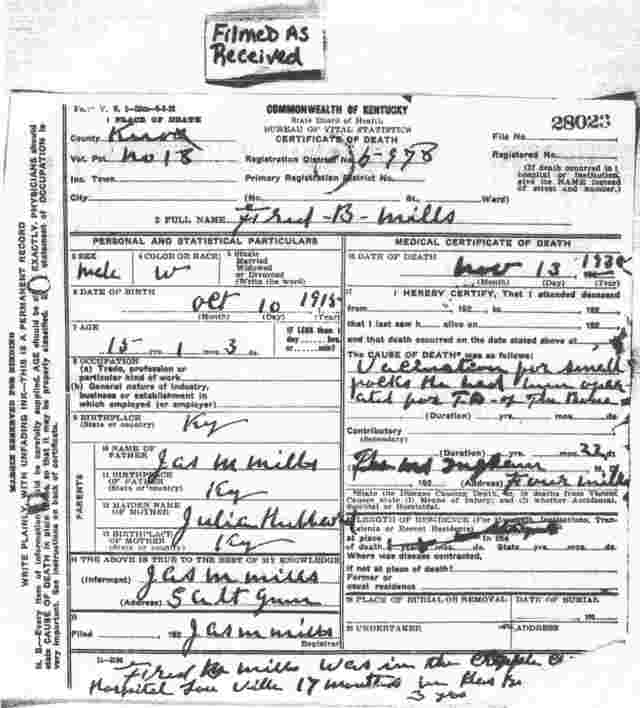 Filmed As
Received
COMMONWEALTH OF KENTUCKY
State Board of Health
BUREAU OF VITAL STATISTICS
CERTIFICATE OF DEATH
28023
1 PLACE OF DEATH
County Knox
Vot. Pct. No 18
Inc. Town
City
Registration District No.
Primary Registration District No.
(No. St., Ward)
File No.
Registered No.
(If death occurred in a
hospital or institution,
give the NAME instead
of street and number.)
2 FULL NAME Fred - B - Mills
MARGIN RESERVED FOR BINDING
WRITE PLAINLY, WITH UNFADING INK—THIS IS A PERMANENT RECORD
PERSONAL AND STATISTICAL PARTICULARS
3 SEX
male
4 COLOR OR RACE
W
5 Single
Married
Widowed
or Divorced
(Write the word)
6 DATE OF BIRTH
Oct 10 1915
(Month) (Day) (Year)
7 AGE
15 yrs. 1 mos. 3 ds.
IF LESS than 1
day hrs.
or min?
8 OCCUPATION
(a) Trade, profession or
particular kind of work
(b) General nature of industry,
business or establishment in
which employed (or employer)
9 BIRTHPLACE
(State or country)
Ky
PARENTS
10 NAME OF
FATHER
Jas M Mills
11 BIRTHPLACE
OF FATHER
(State or country)
Ky
12 MAIDEN NAME
OF MOTHER
Julia
13 BIRTHPLACE
OF MOTHER
(State or country)
Ky
14 THE ABOVE IS TRUE TO THE BEST OF MY KNOWLEDGE
(Informant) Jas M Mills
(Address) Scalt
15
Filed 192 Jas M Mills
Registrar
MEDICAL CERTIFICATE OF DEATH
16 DATE OF DEATH
Nov 13 1930
(Month) (Day) (Year)
17 I HEREBY CERTIFY, That I attended deceased
from 192 to 192
that I last saw h alive on 192
and that death occurred on the date stated above at
The CAUSE OF DEATH* was as follows:
Vaccination for small
he had been oper
ated for TB - of The Bone
(Duration) yrs. mos. ds.
Contributory
(Secondary)
(Duration) yrs. mos. 22 ds.
192 (Address)
*State the Disease Causing Death, or, in deaths from Violent
Causes state (1) Means of Injury; and (2) whether Accidental,
Suicidal or Homicidal.
18 LENGTH OF RESIDENCE (For Hospitals, Institutions, Tran-
sients or Recent Residents)
at place In the
of death yrs. mos. ds. State yrs. mos. ds.
Where was disease contracted,
if not at place of death?
Former or
usual residence
19 PLACE OF BURIAL OR REMOVAL
DATE OF BURIAL
192
20 UNDERTAKER
ADDRESS
Fred Mills was in the Cripple C
Hospital Lou Ville 17 months in
3 yrs